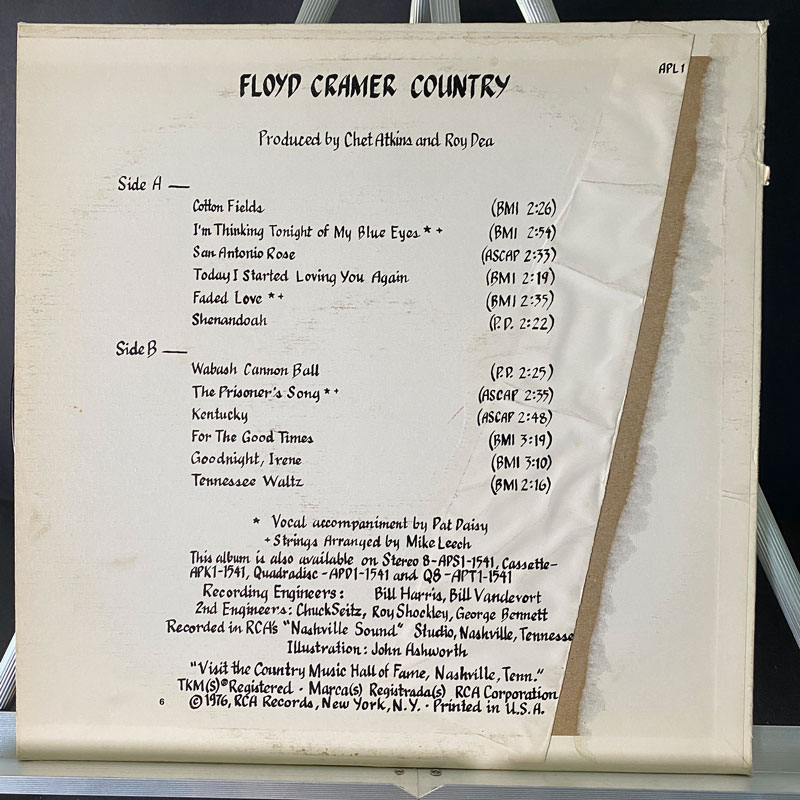 APL1
FLOYD CRAMER COUNTRY
Produced by Chet Atkins and Roy Dea
Side A —
Cotton Fields (BMI 2:26)
I'm Thinking Tonight of My Blue Eyes * + (BMI 2:54)
San Antonio Rose (ASCAP 2:33)
Today I Started Loving You Again (BMI 2:19)
Faded Love * + (BMI 2:35)
Shenandoah (P.D. 2:22)
Side B —
Wabash Cannon Ball (P.D. 2:25)
The Prisoner's Song * + (ASCAP 2:35)
Kentucky (ASCAP 2:48)
For The Good Times (BMI 3:19)
Goodnight, Irene (BMI 3:10)
Tennessee Waltz (BMI 2:16)
* Vocal accompaniment by Pat Daisy
+ Strings Arranged by Mike Leech
This album is also available on Stereo 8-APS1-1541, Cassette-
APK1-1541, Quadradisc-APD1-1541 and Q8-APT1-1541
Recording Engineers: Bill Harris, Bill Vandevort
2nd Engineers: Chuck Seitz, Roy Shockley, George Bennett
Recorded in RCA's "Nashville Sound" Studio, Nashville, Tennessee
Illustration: John Ashworth
"Visit the Country Music Hall of Fame, Nashville, Tenn."
TKM(S)® Registered · Marca(s) Registrada(s) RCA Corporation
6 © 1976, RCA Records, New York, N.Y. · Printed in U.S.A.